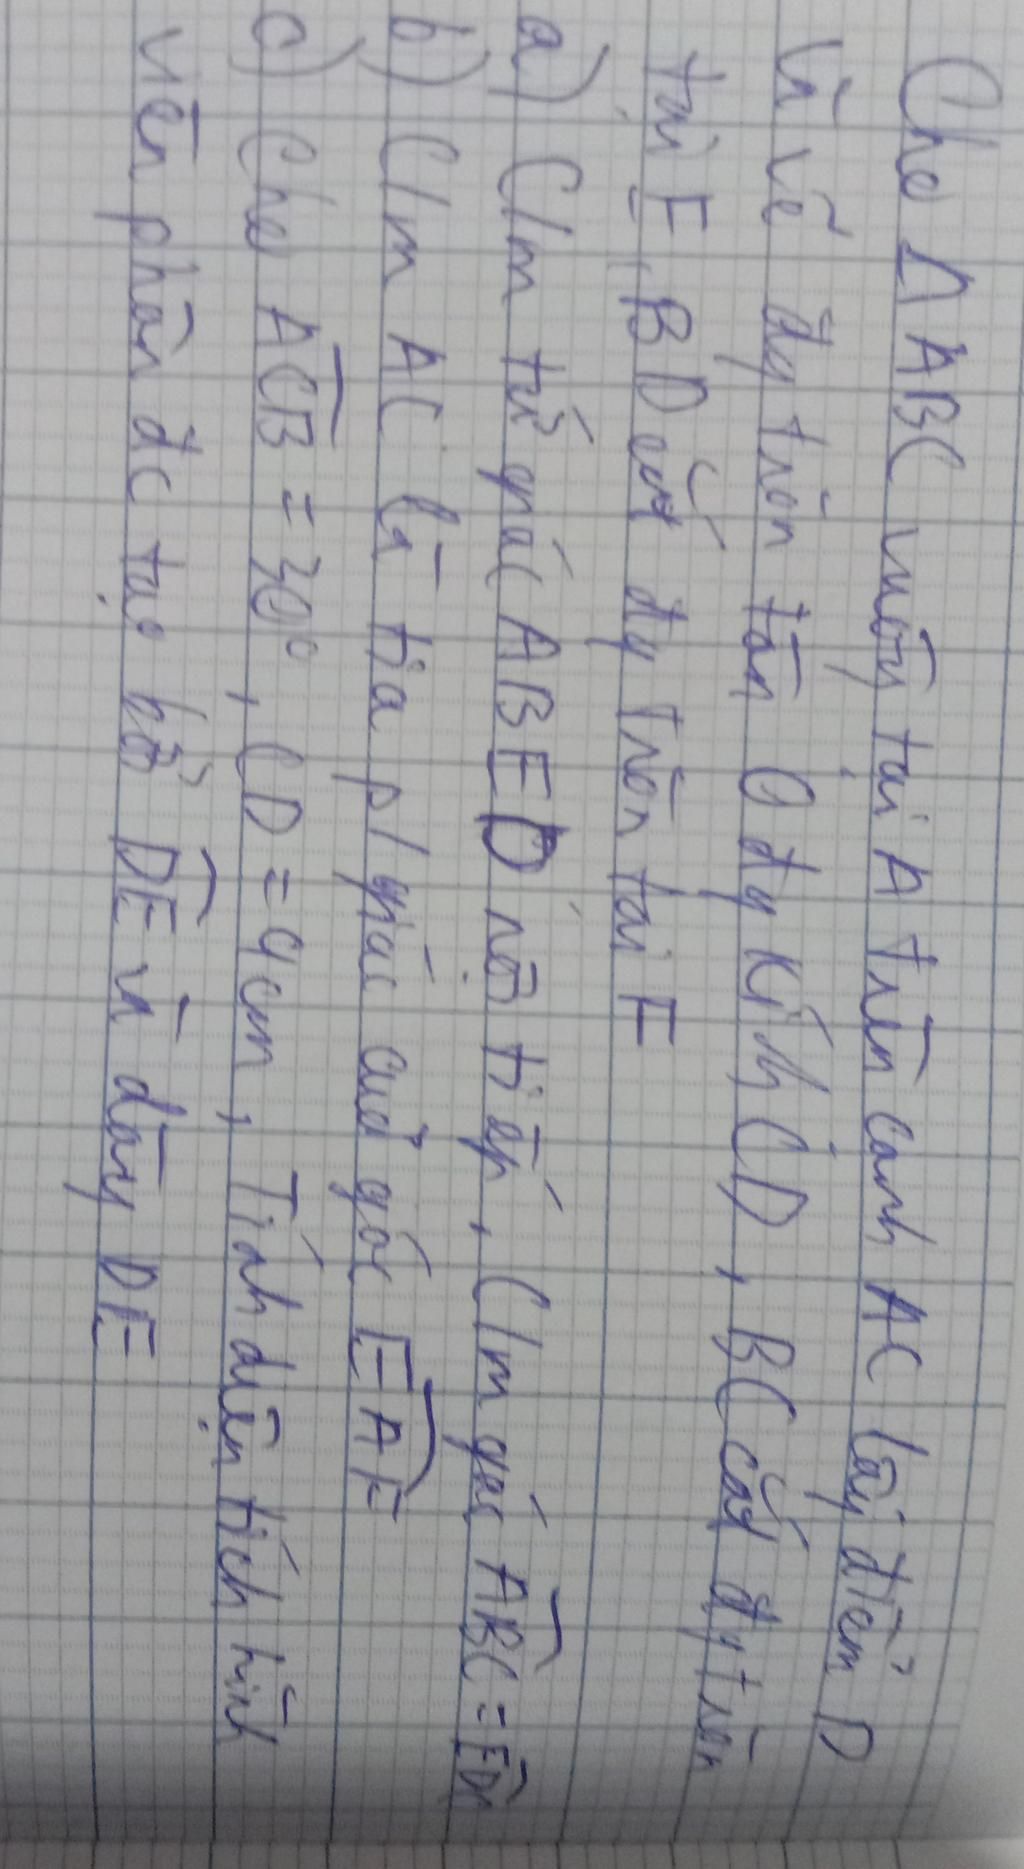 Cho Δ ABC vuông tại A trên cạnh AC lấy điểm D
và vẽ đg tròn tân O đg kính CD, BC cắt đg tròn
tại E, BD cắt đg tròn tại F
a) C/m tứ giác ABED nội tiếp, C/m góc ABC = EDC
b) C/m AC là tia p/ giác của góc EAF
c) Cho ACB = 30°, CD = 4cm, Tính diện tích hình
viên phân đc tạo bởi DE và dây DE